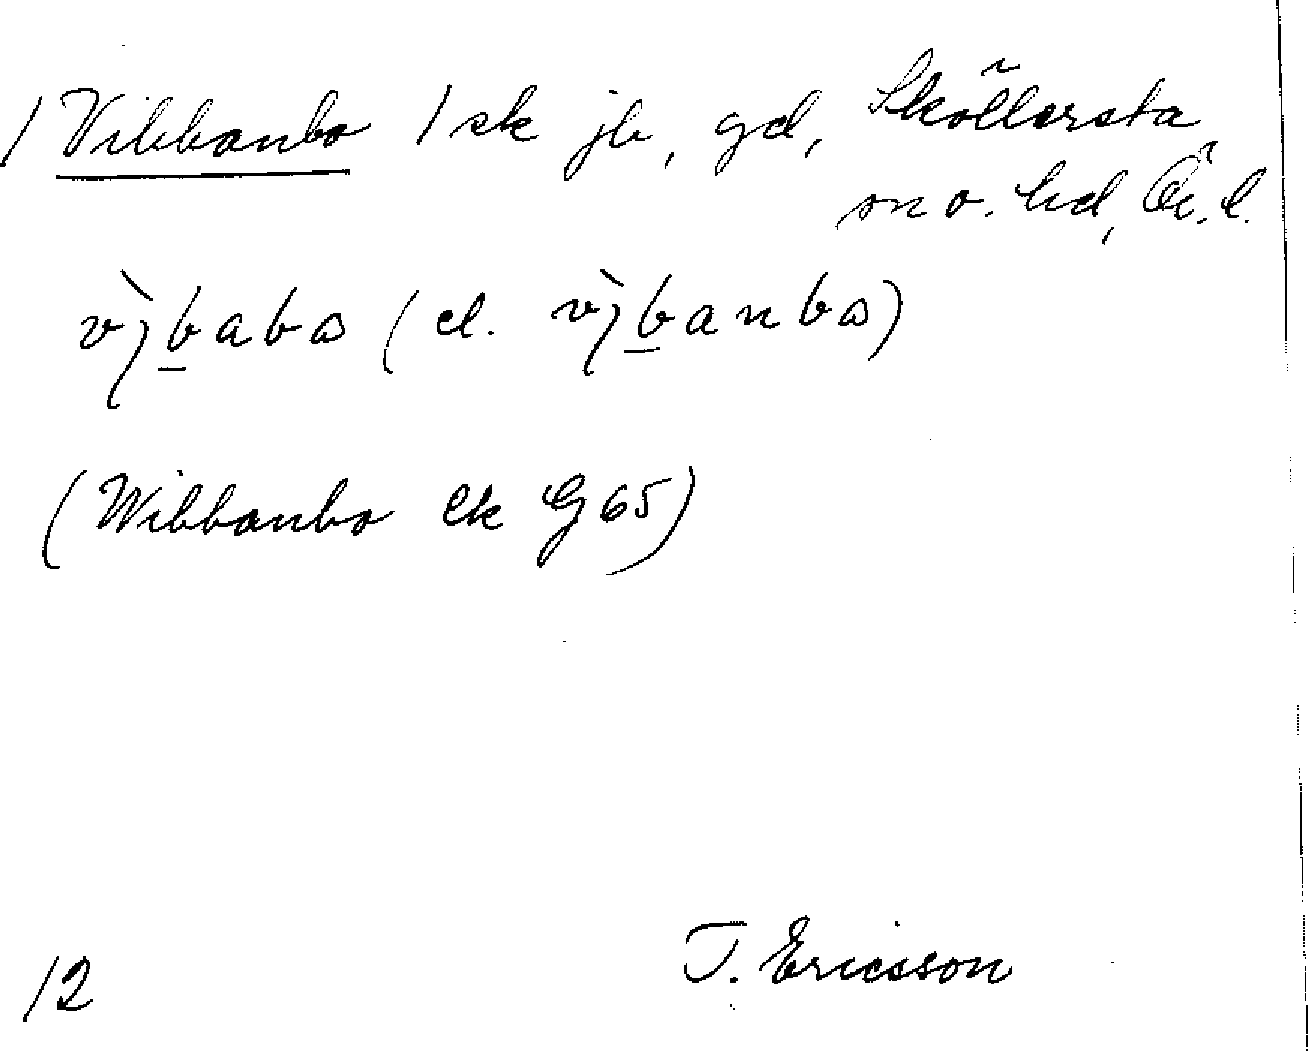 / Vibbanbo / sk jb, gd, Sköllersta
sn o. hd, Ör. l.
vìbabo (el. vìbanbo)
(Wibbanbo Ek G65)
12
T. Ericsson